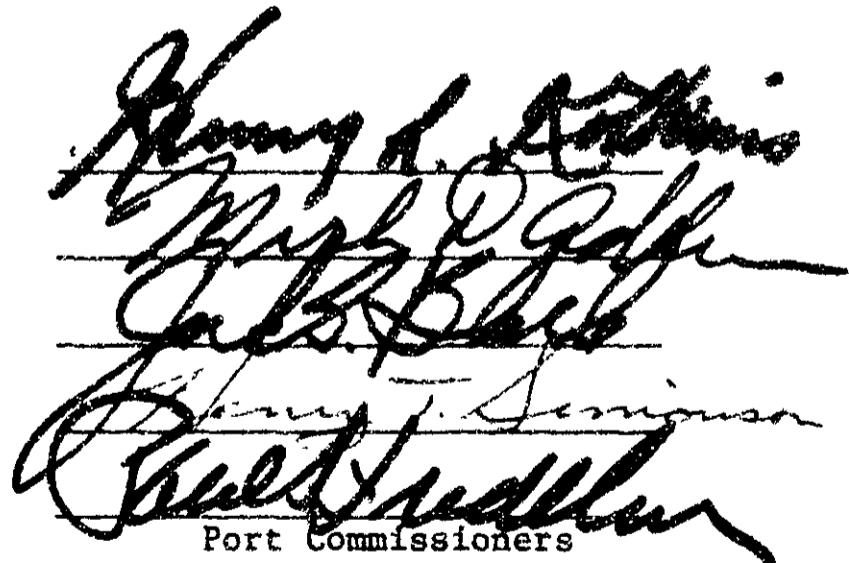 Henry L. Kotkins
Merle D. Adlum
Jack S. Block
Henry T. Simonson
Paul S. Friedlander
Port Commissioners